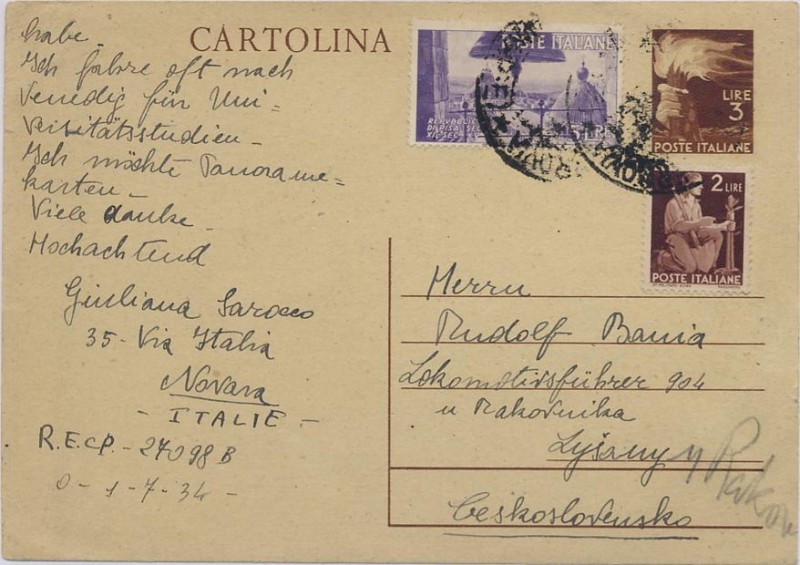 CARTOLINA
habe
Ich fahre oft nach
Venedig für Uni-
versitätsstudien -
Ich möchte Panorame-
karten -
Viele danke -
Hochachtend
Giuliana Sarocco
35 - Via Italia
Novara
- ITALIE -
R.E.CP. - 27098 B
0 - 1 - 7 - 34 -
POSTE ITALIANE
REPUBBLICA
LIRE
3
POSTE ITALIANE
2 LIRE
POSTE ITALIANE
Herrn
Rudolf Bania
Lokomotivsführer 904
u Rakovnika
Lyšany
Československo